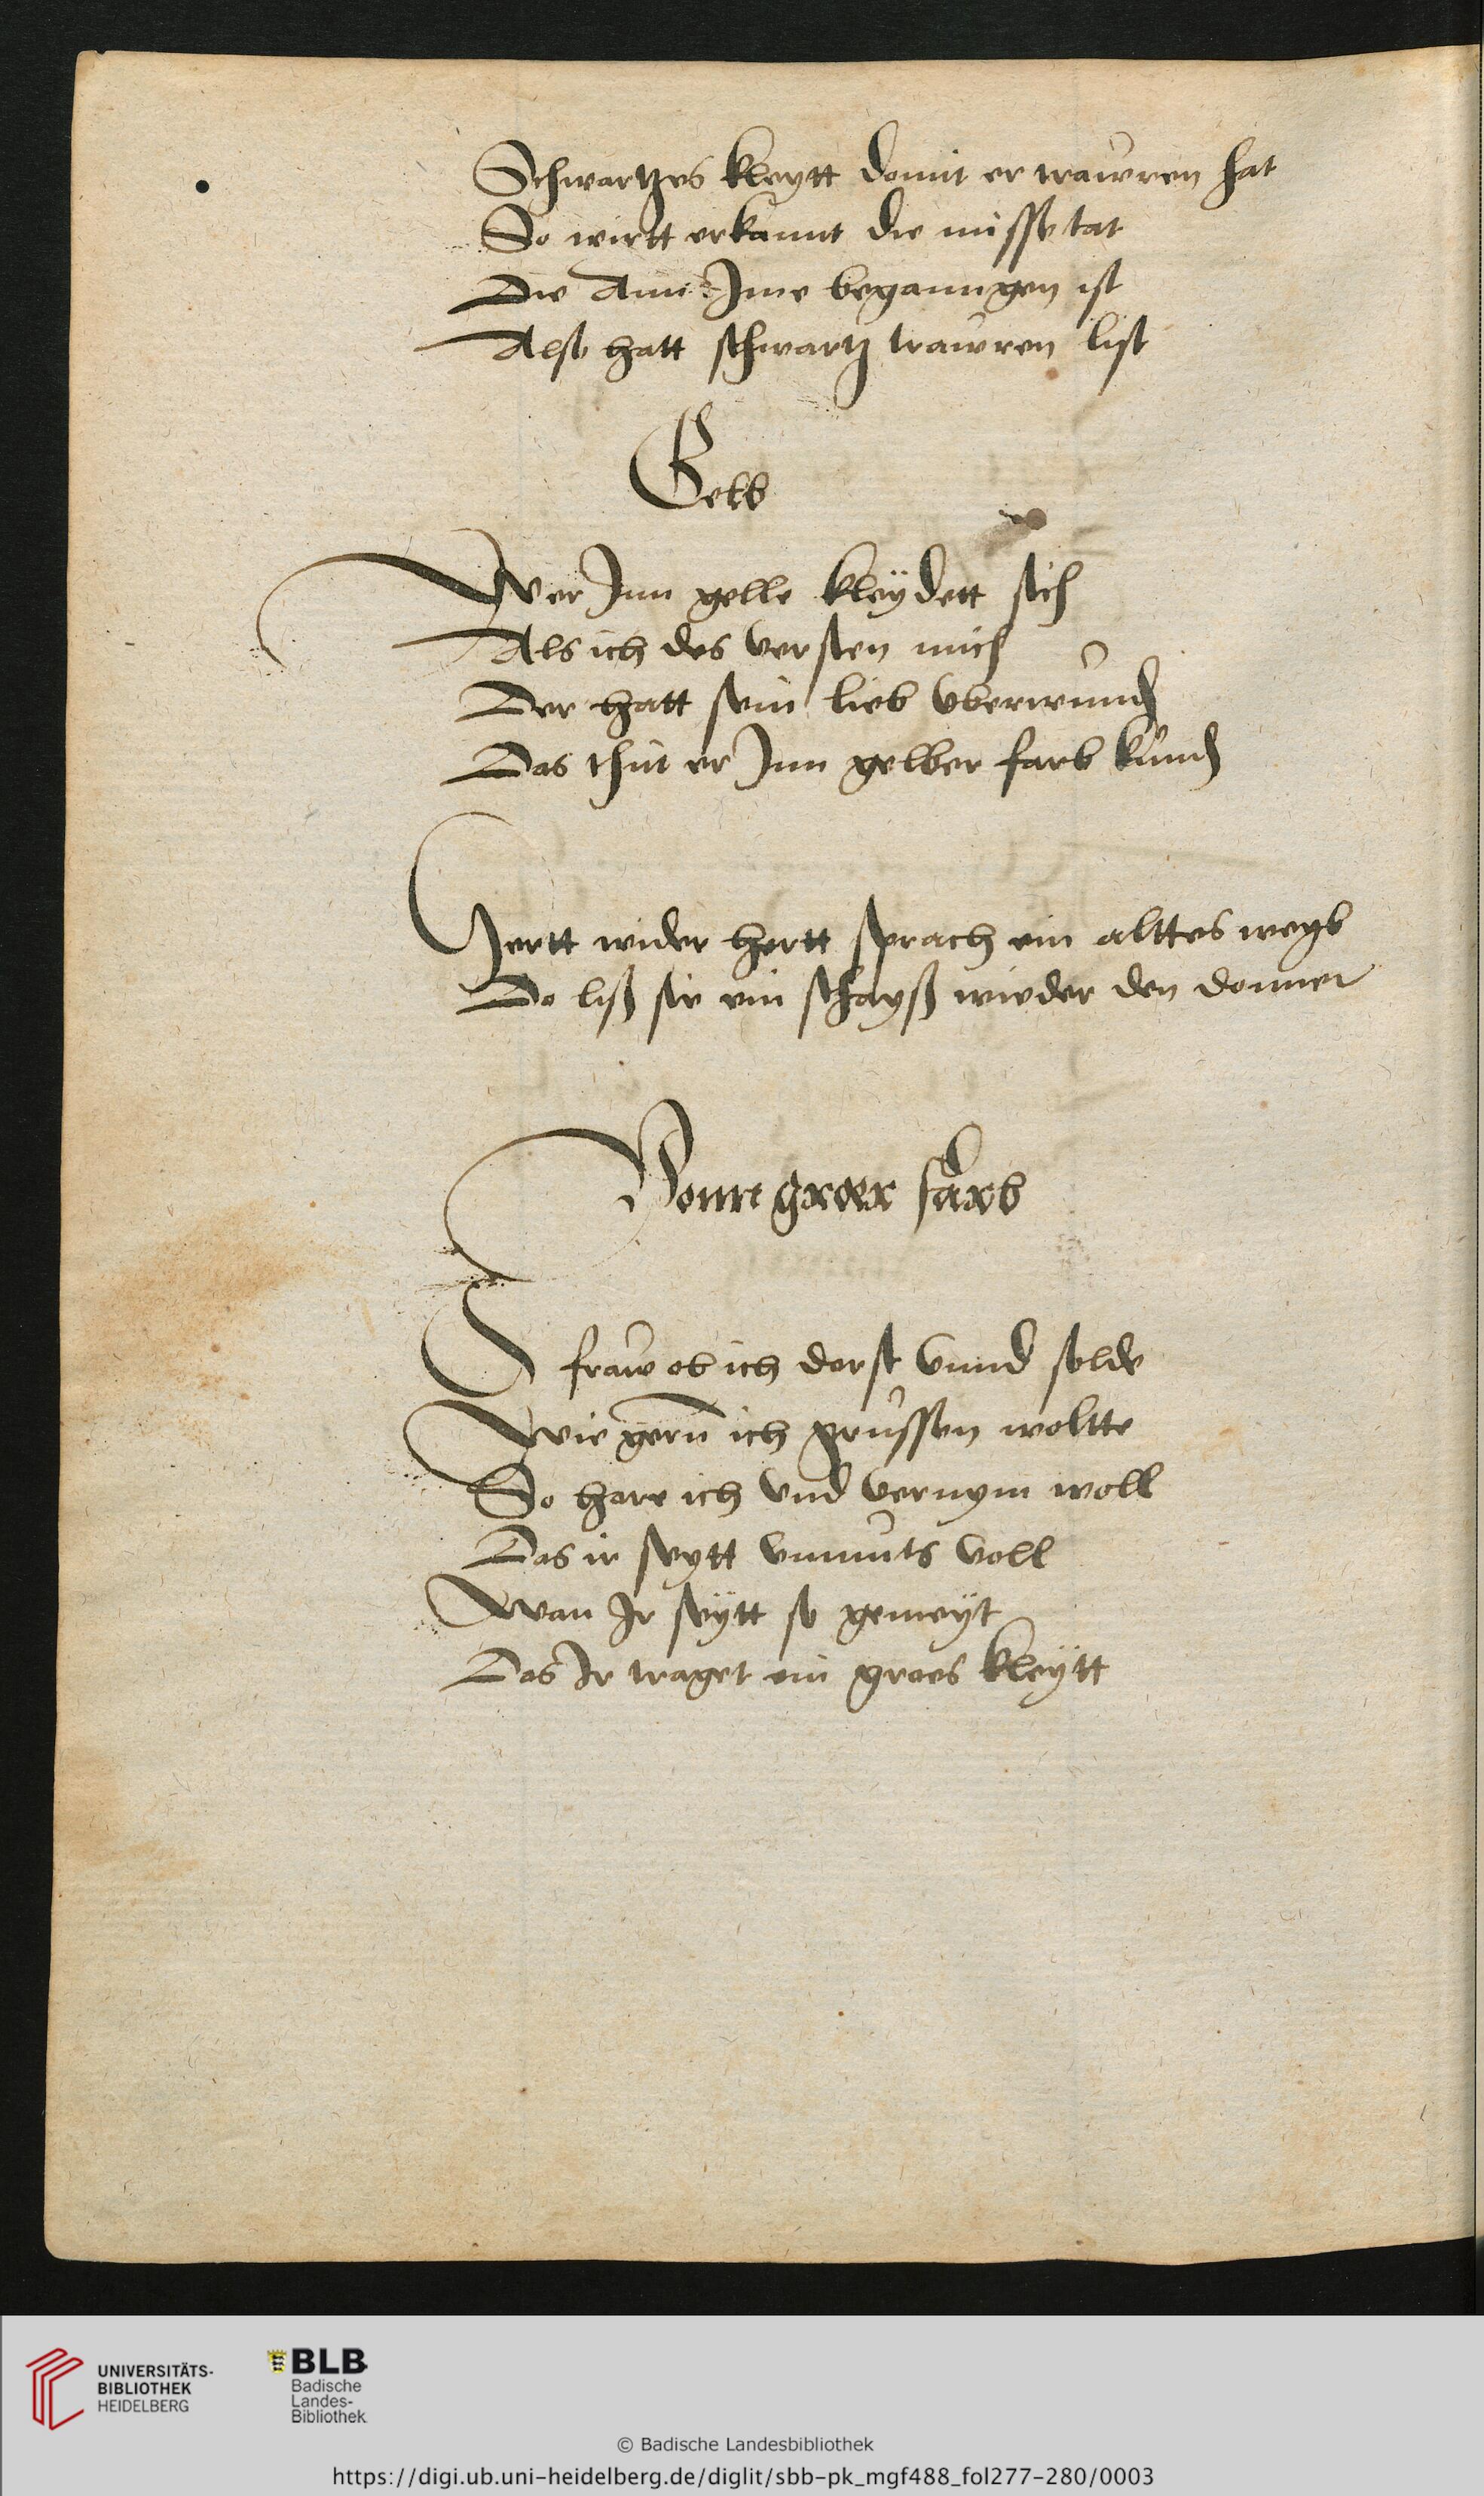 Schwartzes kleytt domit er trawren hat
So wirtt erkannt die missetat
Die Ann Ime beganngen ist
Also hatt schwartz trawren list
Gelb
Wer Inn gelle kleÿdett sich
Als ich des versten mich
Der hatt sein lieb vberwund
Das thut er Inn gelber farb kund
Hertt wider hertt sprach ein alttes weyb
Do liß sie ein schayß wieder den donner
Vonn graer farb
O fraw ob ich dorst vnnd solde
Wie gern ich grussen woltte
So hore ich vnd vernym woll
Das ir seytt vnmuts voll
Wan Ir seÿtt so gemeÿt
Das Ir traget ein graes kleÿtt
UNIVERSITÄTS-
BIBLIOTHEK
HEIDELBERG
BLB
Badische
Landes-
Bibliothek
© Badische Landesbibliothek
https://digi.ub.uni-heidelberg.de/diglit/sbb-pk_mgf488_fol277-280/0003